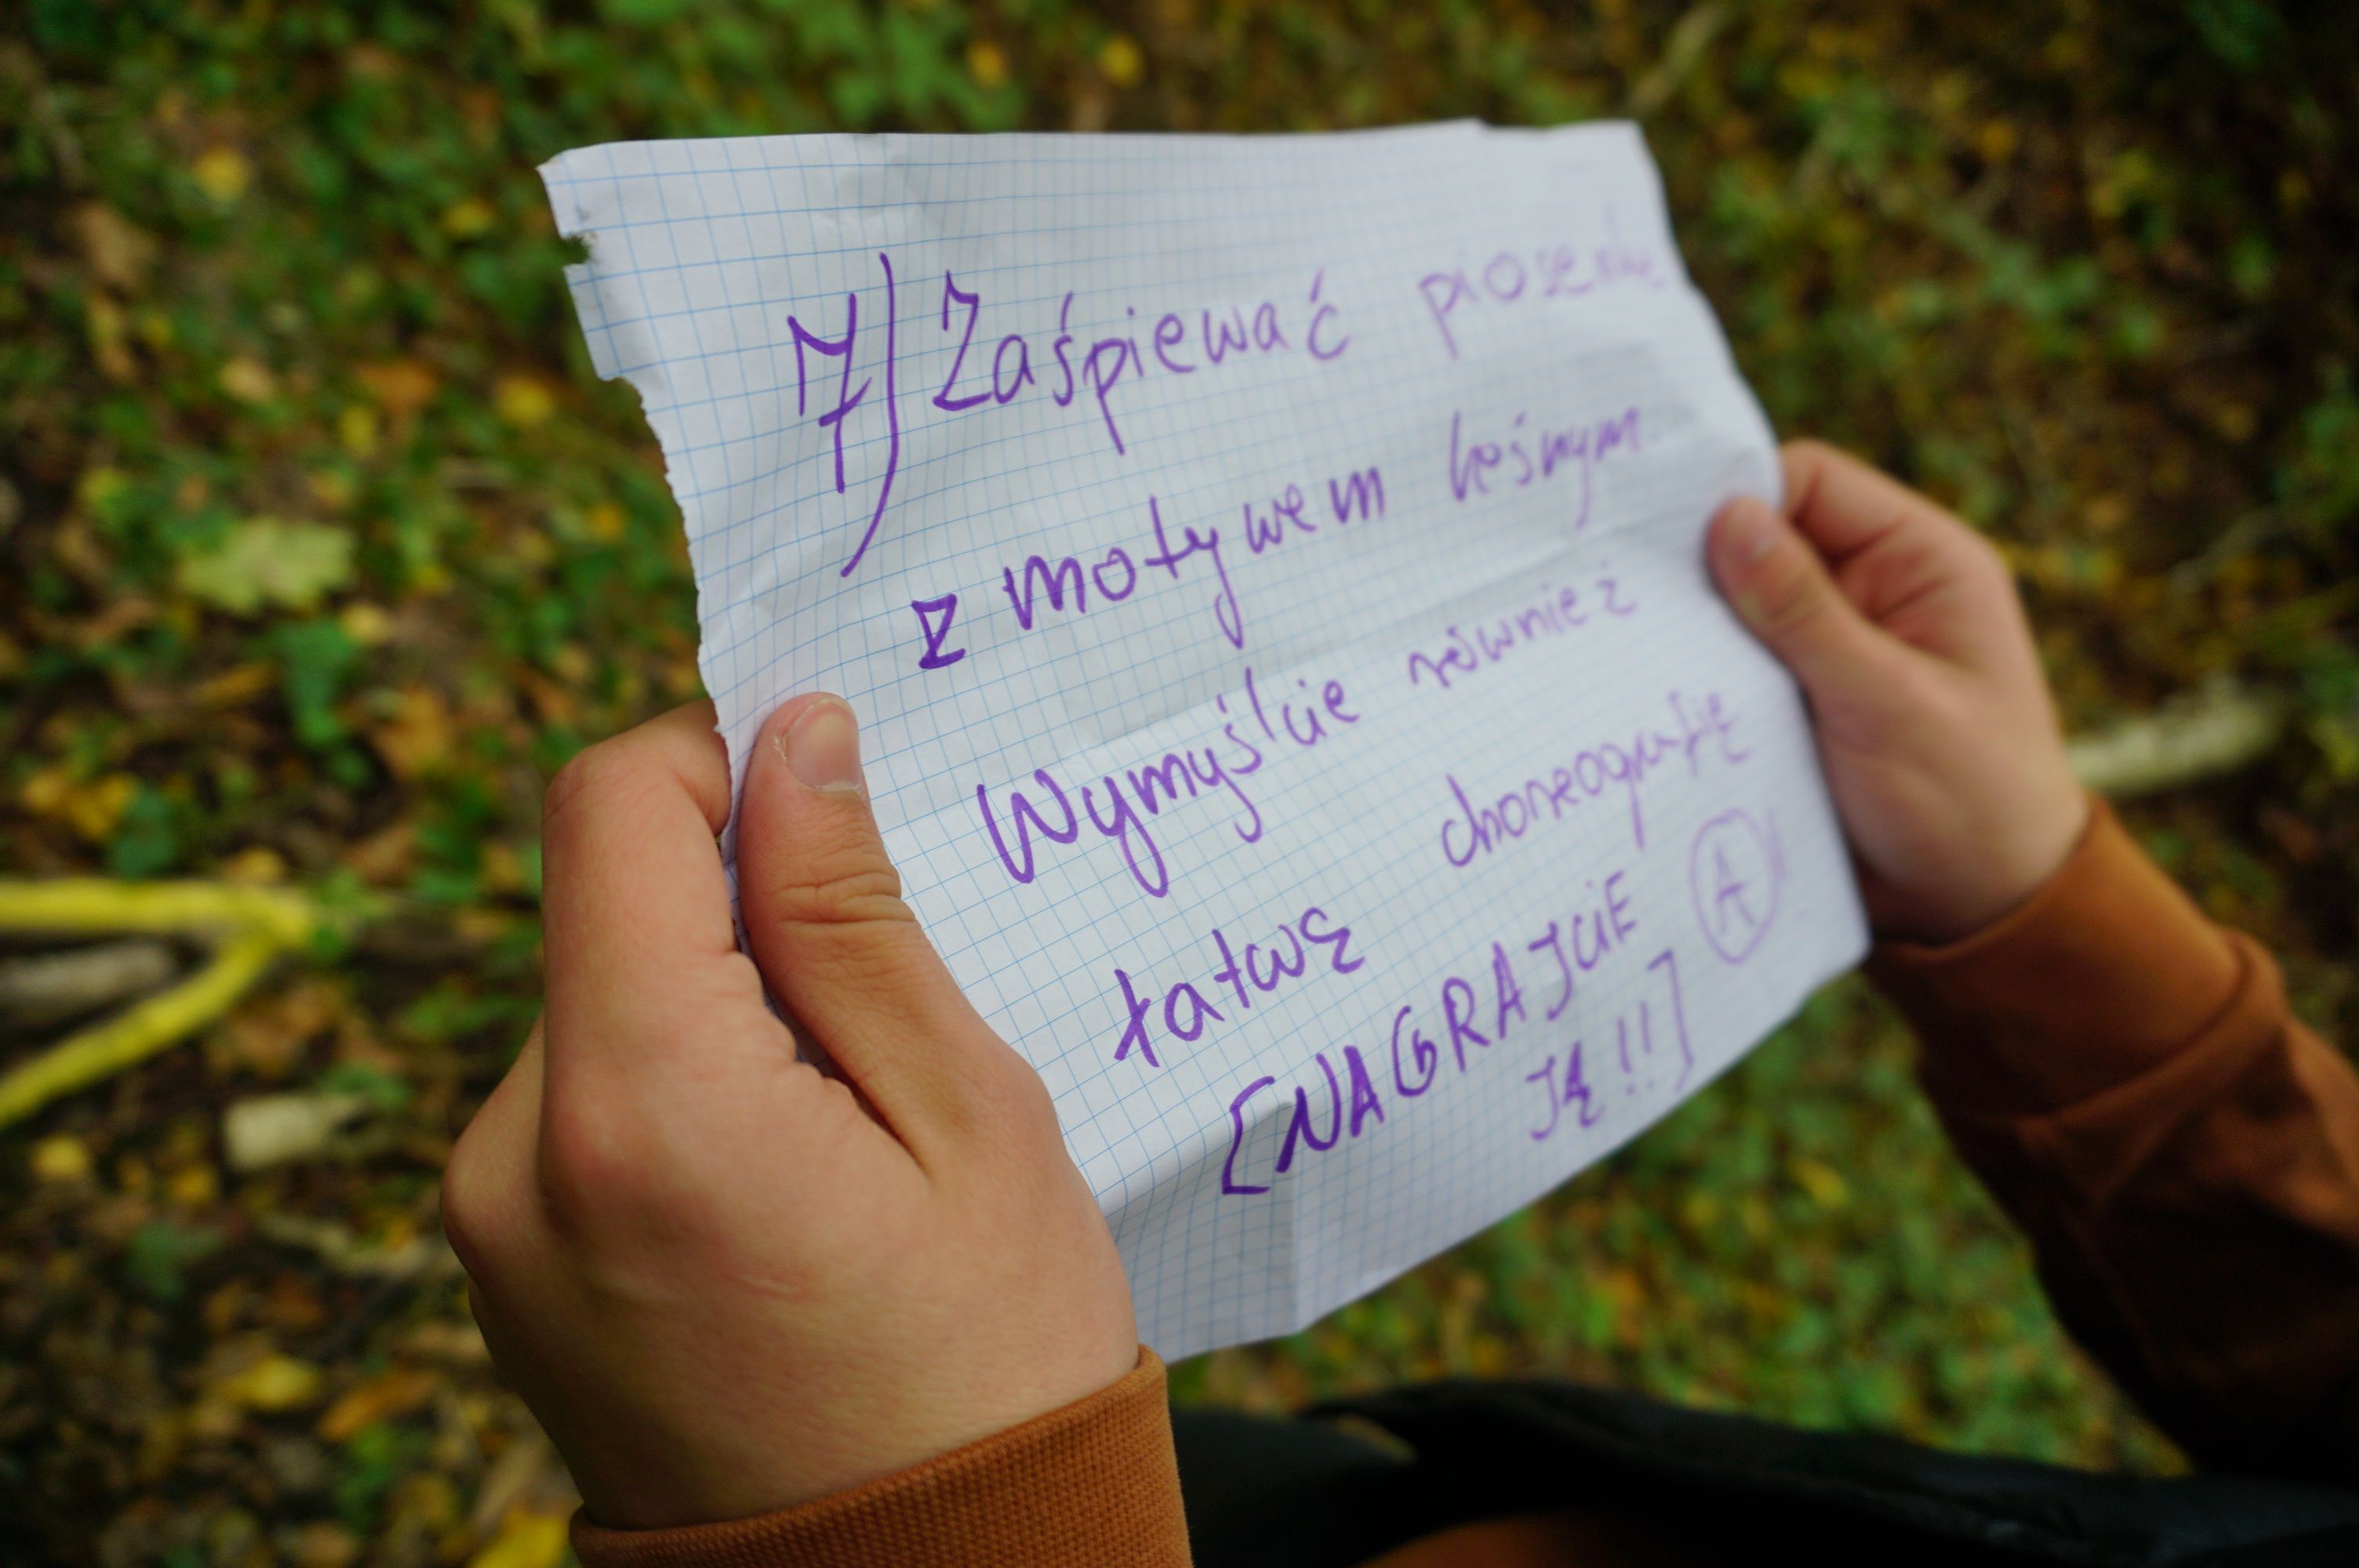 7) Zaśpiewać piosenkę
z motywem leśnym.
Wymyślcie również
łatwę choreografię
[NAGRAJCIE A
JĄ!!]